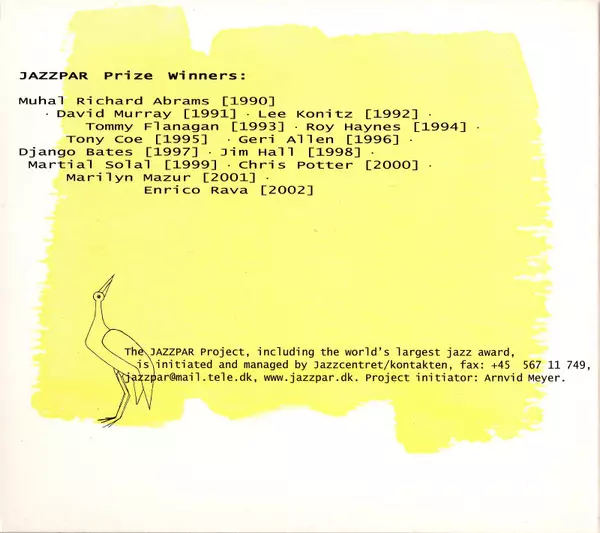 JAZZPAR Prize Winners:
Muhal Richard Abrams [1990]
· David Murray [1991] · Lee Konitz [1992] ·
Tommy Flanagan [1993] · Roy Haynes [1994] ·
Tony Coe [1995] · Geri Allen [1996] ·
Django Bates [1997] · Jim Hall [1998] ·
Martial Solal [1999] · Chris Potter [2000] ·
Marilyn Mazur [2001] ·
Enrico Rava [2002]
The JAZZPAR Project, including the world's largest jazz award,
is initiated and managed by Jazzcentret/kontakten, fax: +45 567 11 749,
jazzpar@mail.tele.dk, www.jazzpar.dk. Project initiator: Arnvid Meyer.